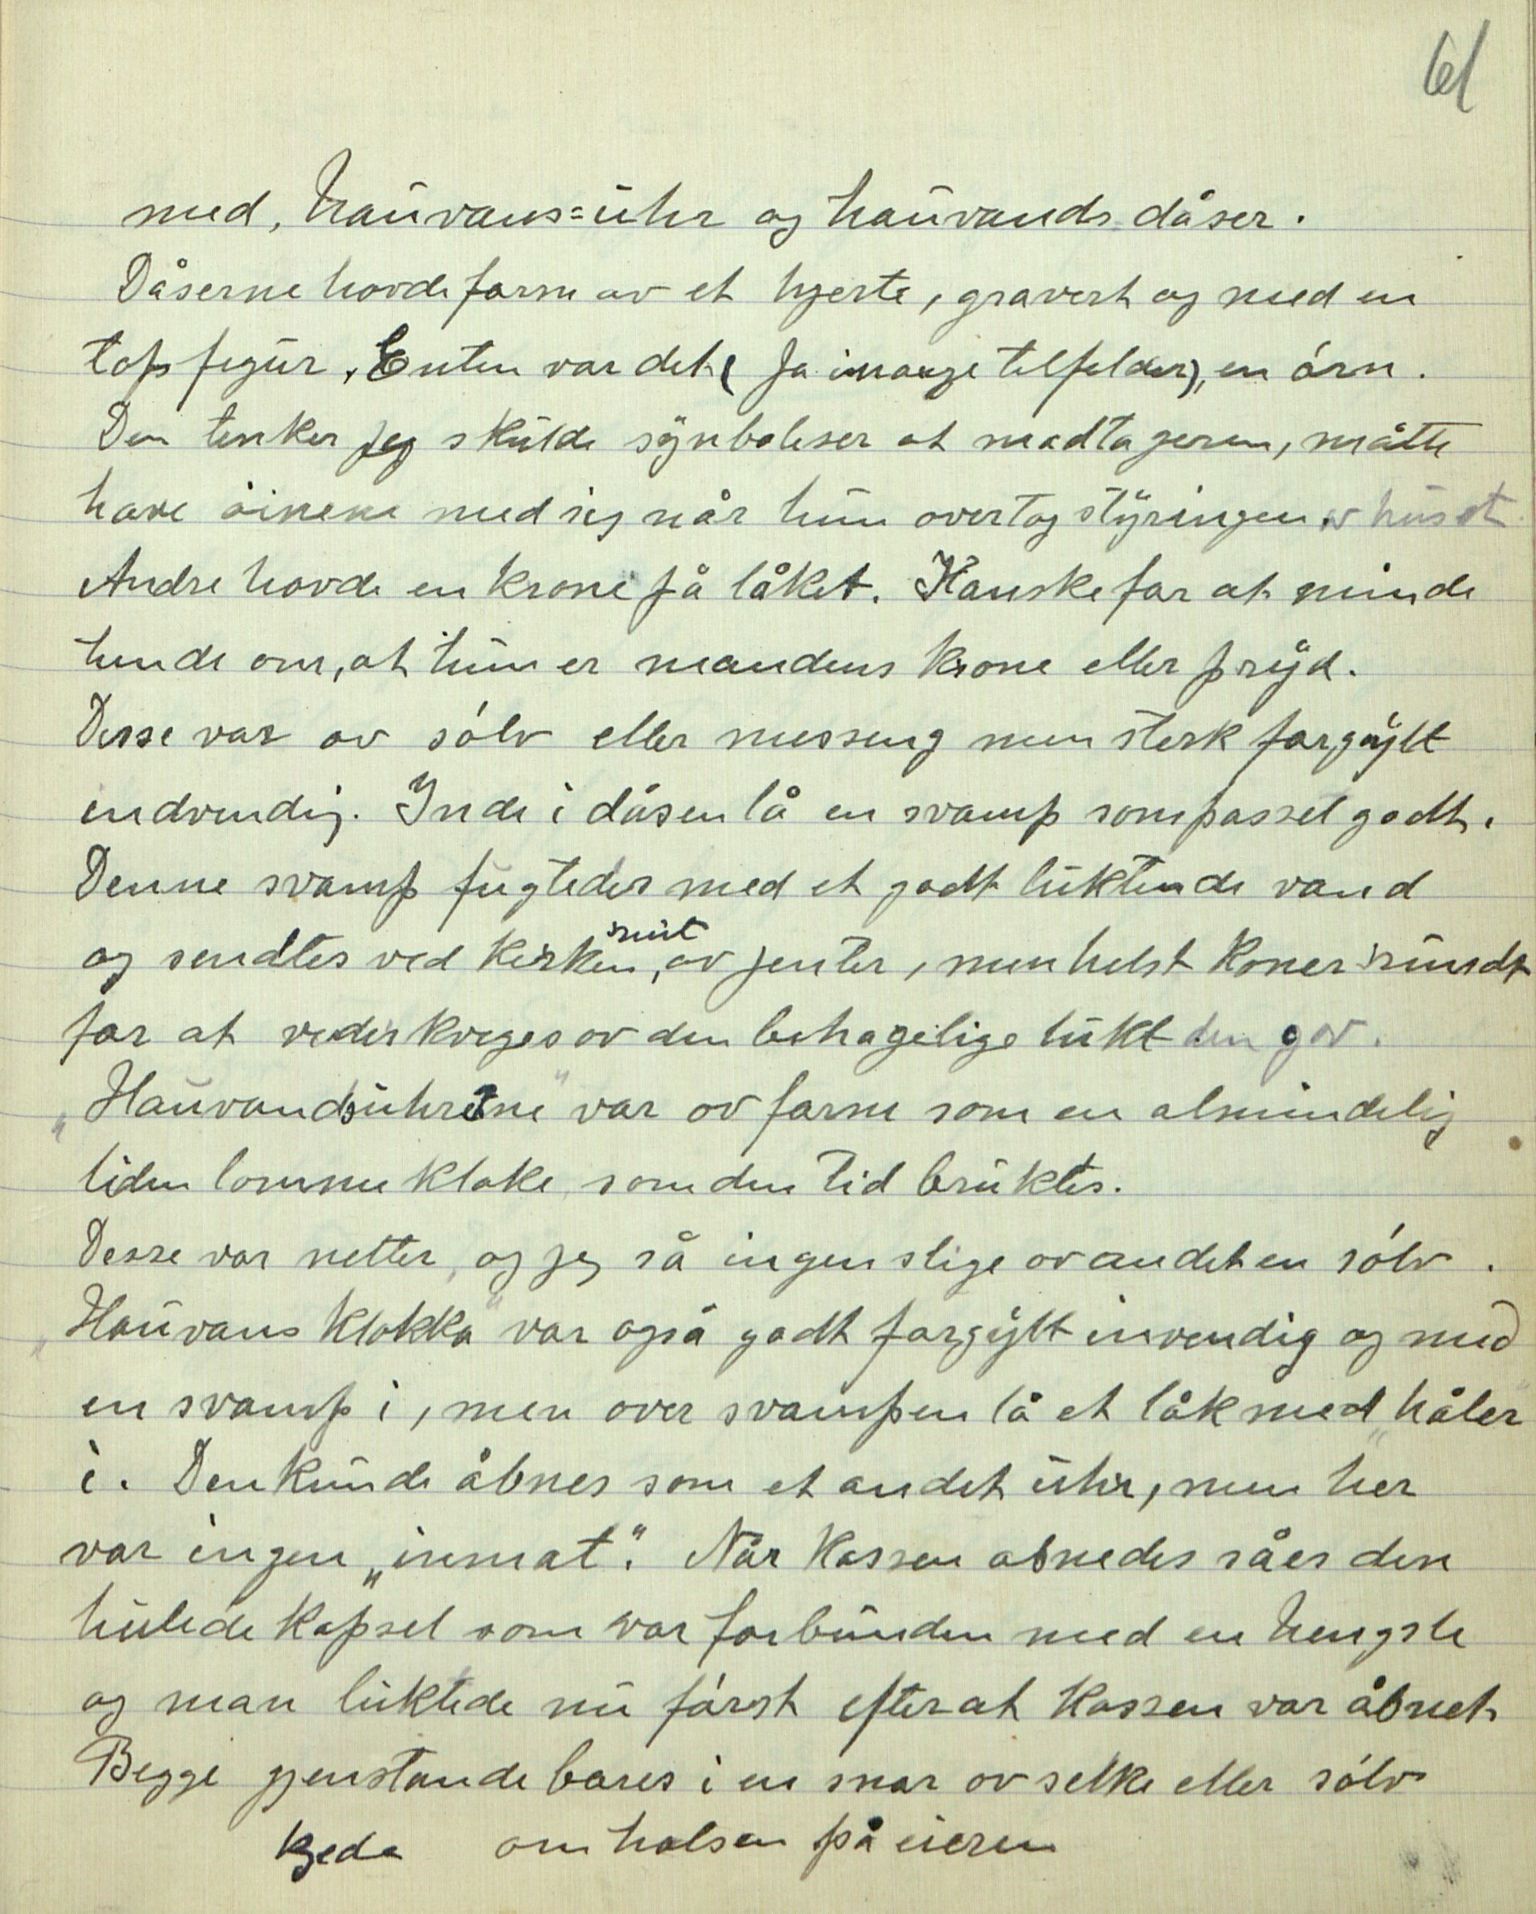 61
med, hauvans=uhr og hauvands dåser.
Dåserne havde form av et hjerte, gravert og med en
topfigur. Enten var det (Ja i mange tilfelder), en órn.
Den tenker jeg skulde synboliser at modtageren, måtte
have öinene med sig når hun overtog styringen av huset
Andre havde en krone på låket. Kanske for at minde
hende om, at hun er mandens krone eller pryd.
Disse var av sólv eller messing men sterk forgylt
indvendig. Inde i dåsen lå en svamp som passet godt.
Denne svamp fugtedes med et godt luktende vand
og sendtes ved kirken, rundt av jenter, men helst koner
for at vederkveges av den behagelige lukt den gav.
„Hauvandsuhrene" var av form som en almindelig
liden lommekloke som den tid bruktes.
Desse var netter, og jeg så ingen slige av andet en sólv.
„Hauvans klokka" var også godt forgylt invendig og med
en svamp i, men over svampen lå et låk med „håler"
i. Den kunde åbnes som et andet uhr, men her
var ingen „inmat". Når kassen abnedes såes den
hulede kapsel som var forbunden med en hengsle
og man luktede nu fórst efter at kassen var åbnet
Begge gjenstande bares i en snor av selke eller sólv
kjede om halsen på eieren